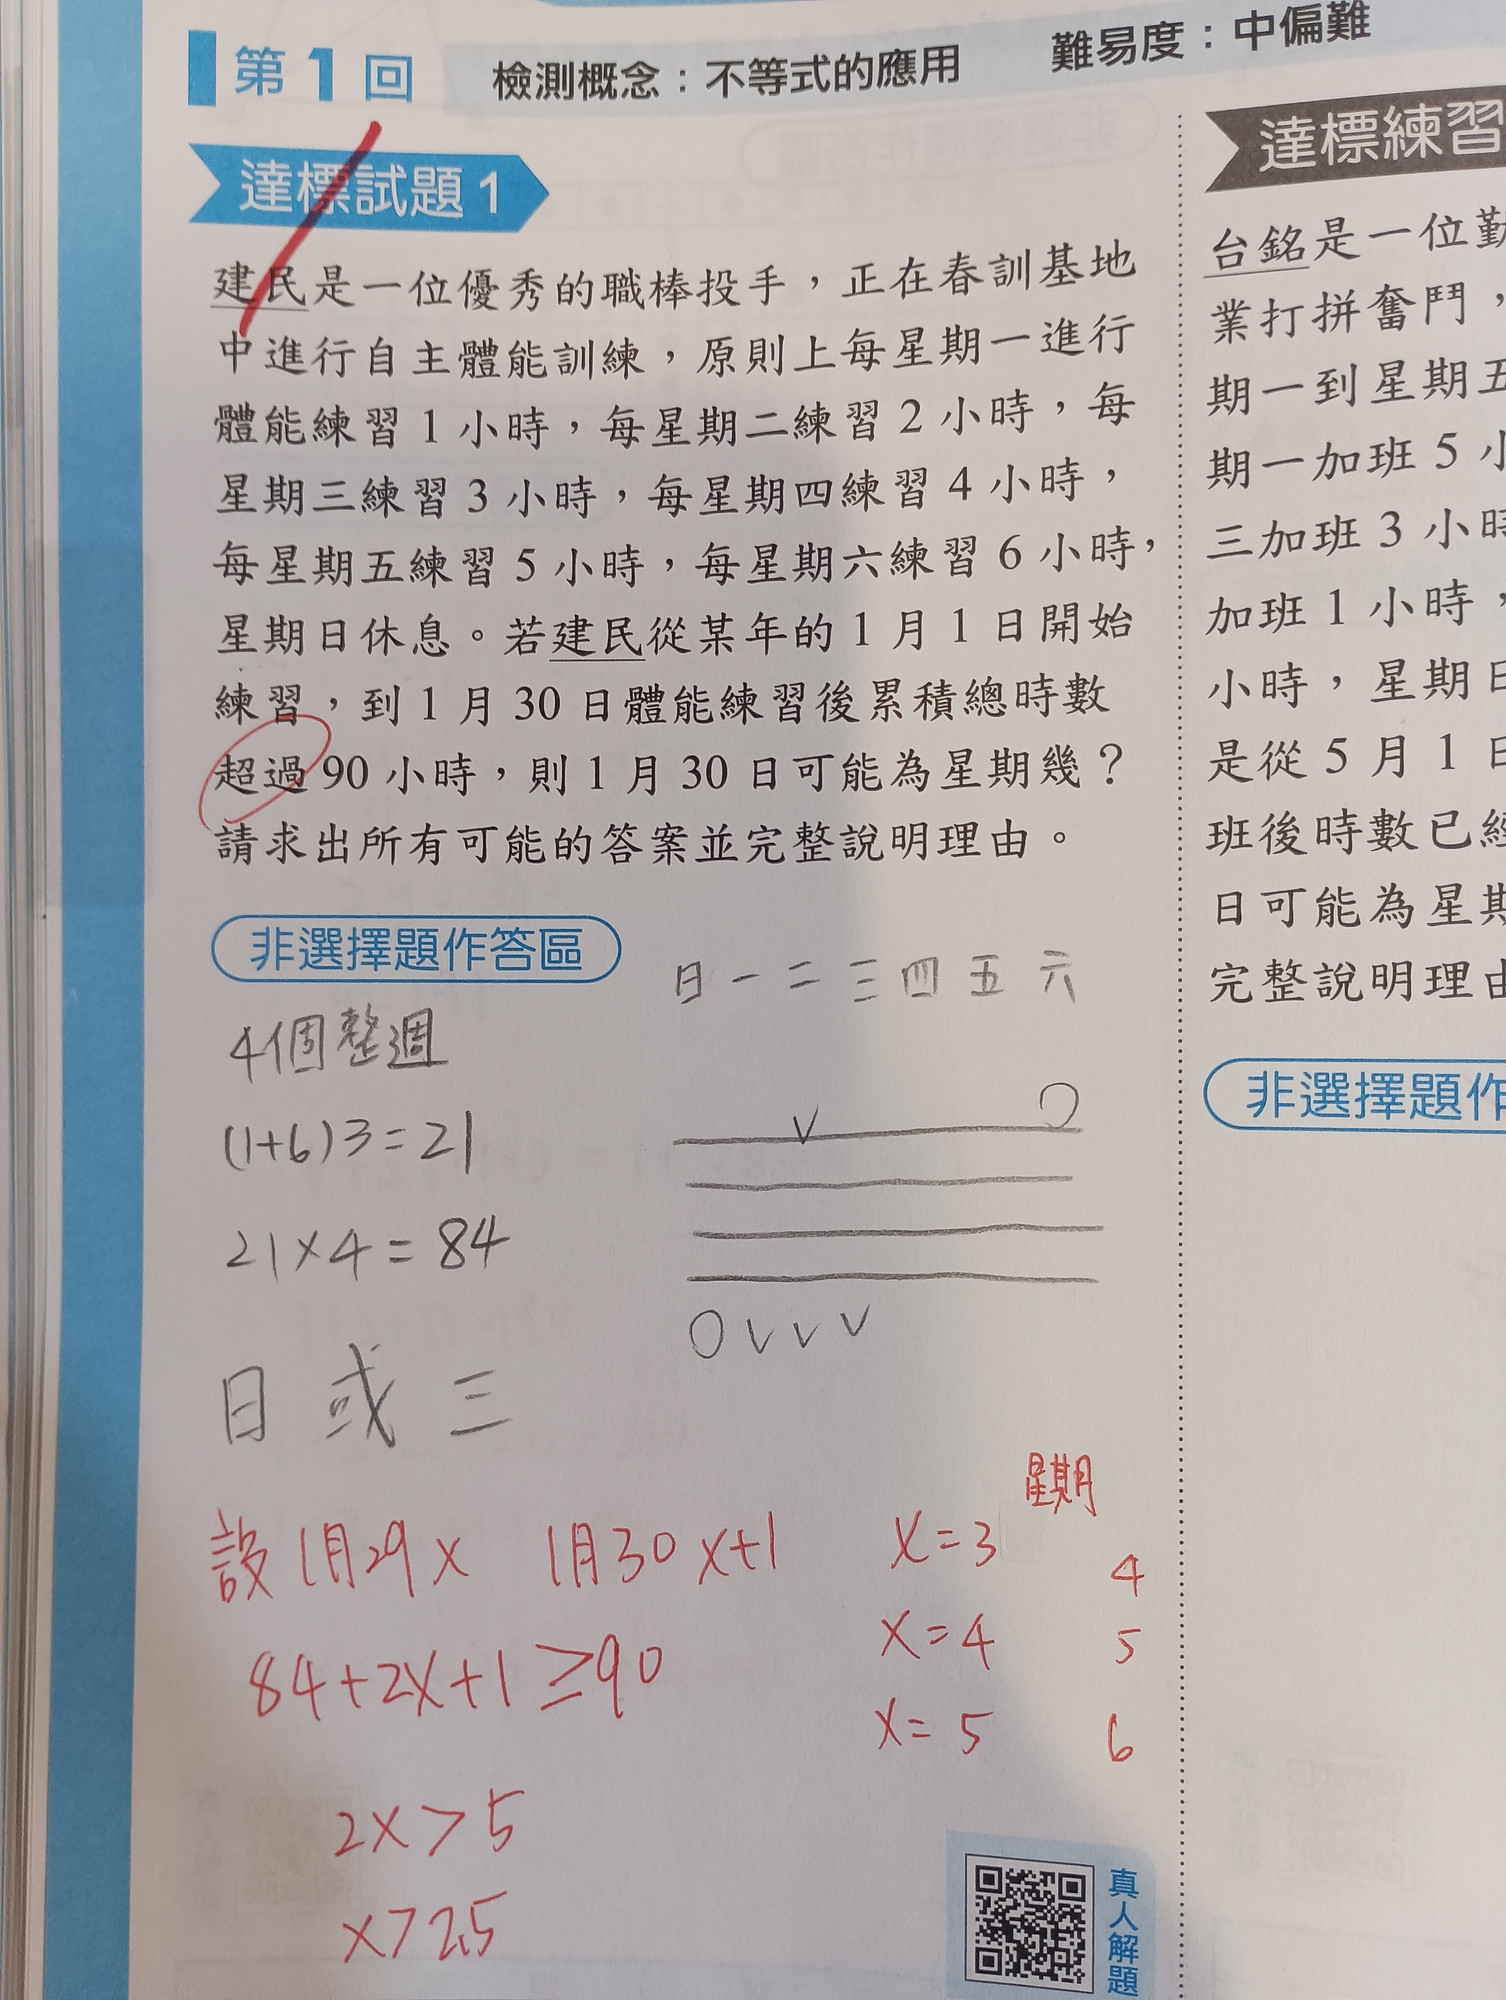 第1回
檢測概念：不等式的應用
難易度：中偏難
達標試題1
建民是一位優秀的職棒投手，正在春訓基地
中進行自主體能訓練，原則上每星期一進行
體能練習1小時，每星期二練習2小時，每
星期三練習3小時，每星期四練習4小時，
每星期五練習5小時，每星期六練習6小時，
星期日休息。若建民從某年的1月1日開始
練習，到1月30日體能練習後累積總時數
超過90小時，則1月30日可能為星期幾？
請求出所有可能的答案並完整說明理由。
非選擇題作答區
日一二三四五六
4個整週
(1+6)3=21
21×4=84
日或三
設1月29 x 1月30 x+1
84+2x+1≥90
2x>5
x>2.5
星期
x=3 4
x=4 5
x=5 6
真人解題
達標練習
台銘是一位勤
業打拼奮鬥，
期一到星期五
期一加班5小
三加班3小時
加班1小時，
小時，星期日
是從5月1日
班後時數已經
日可能為星期
完整說明理由
非選擇題作